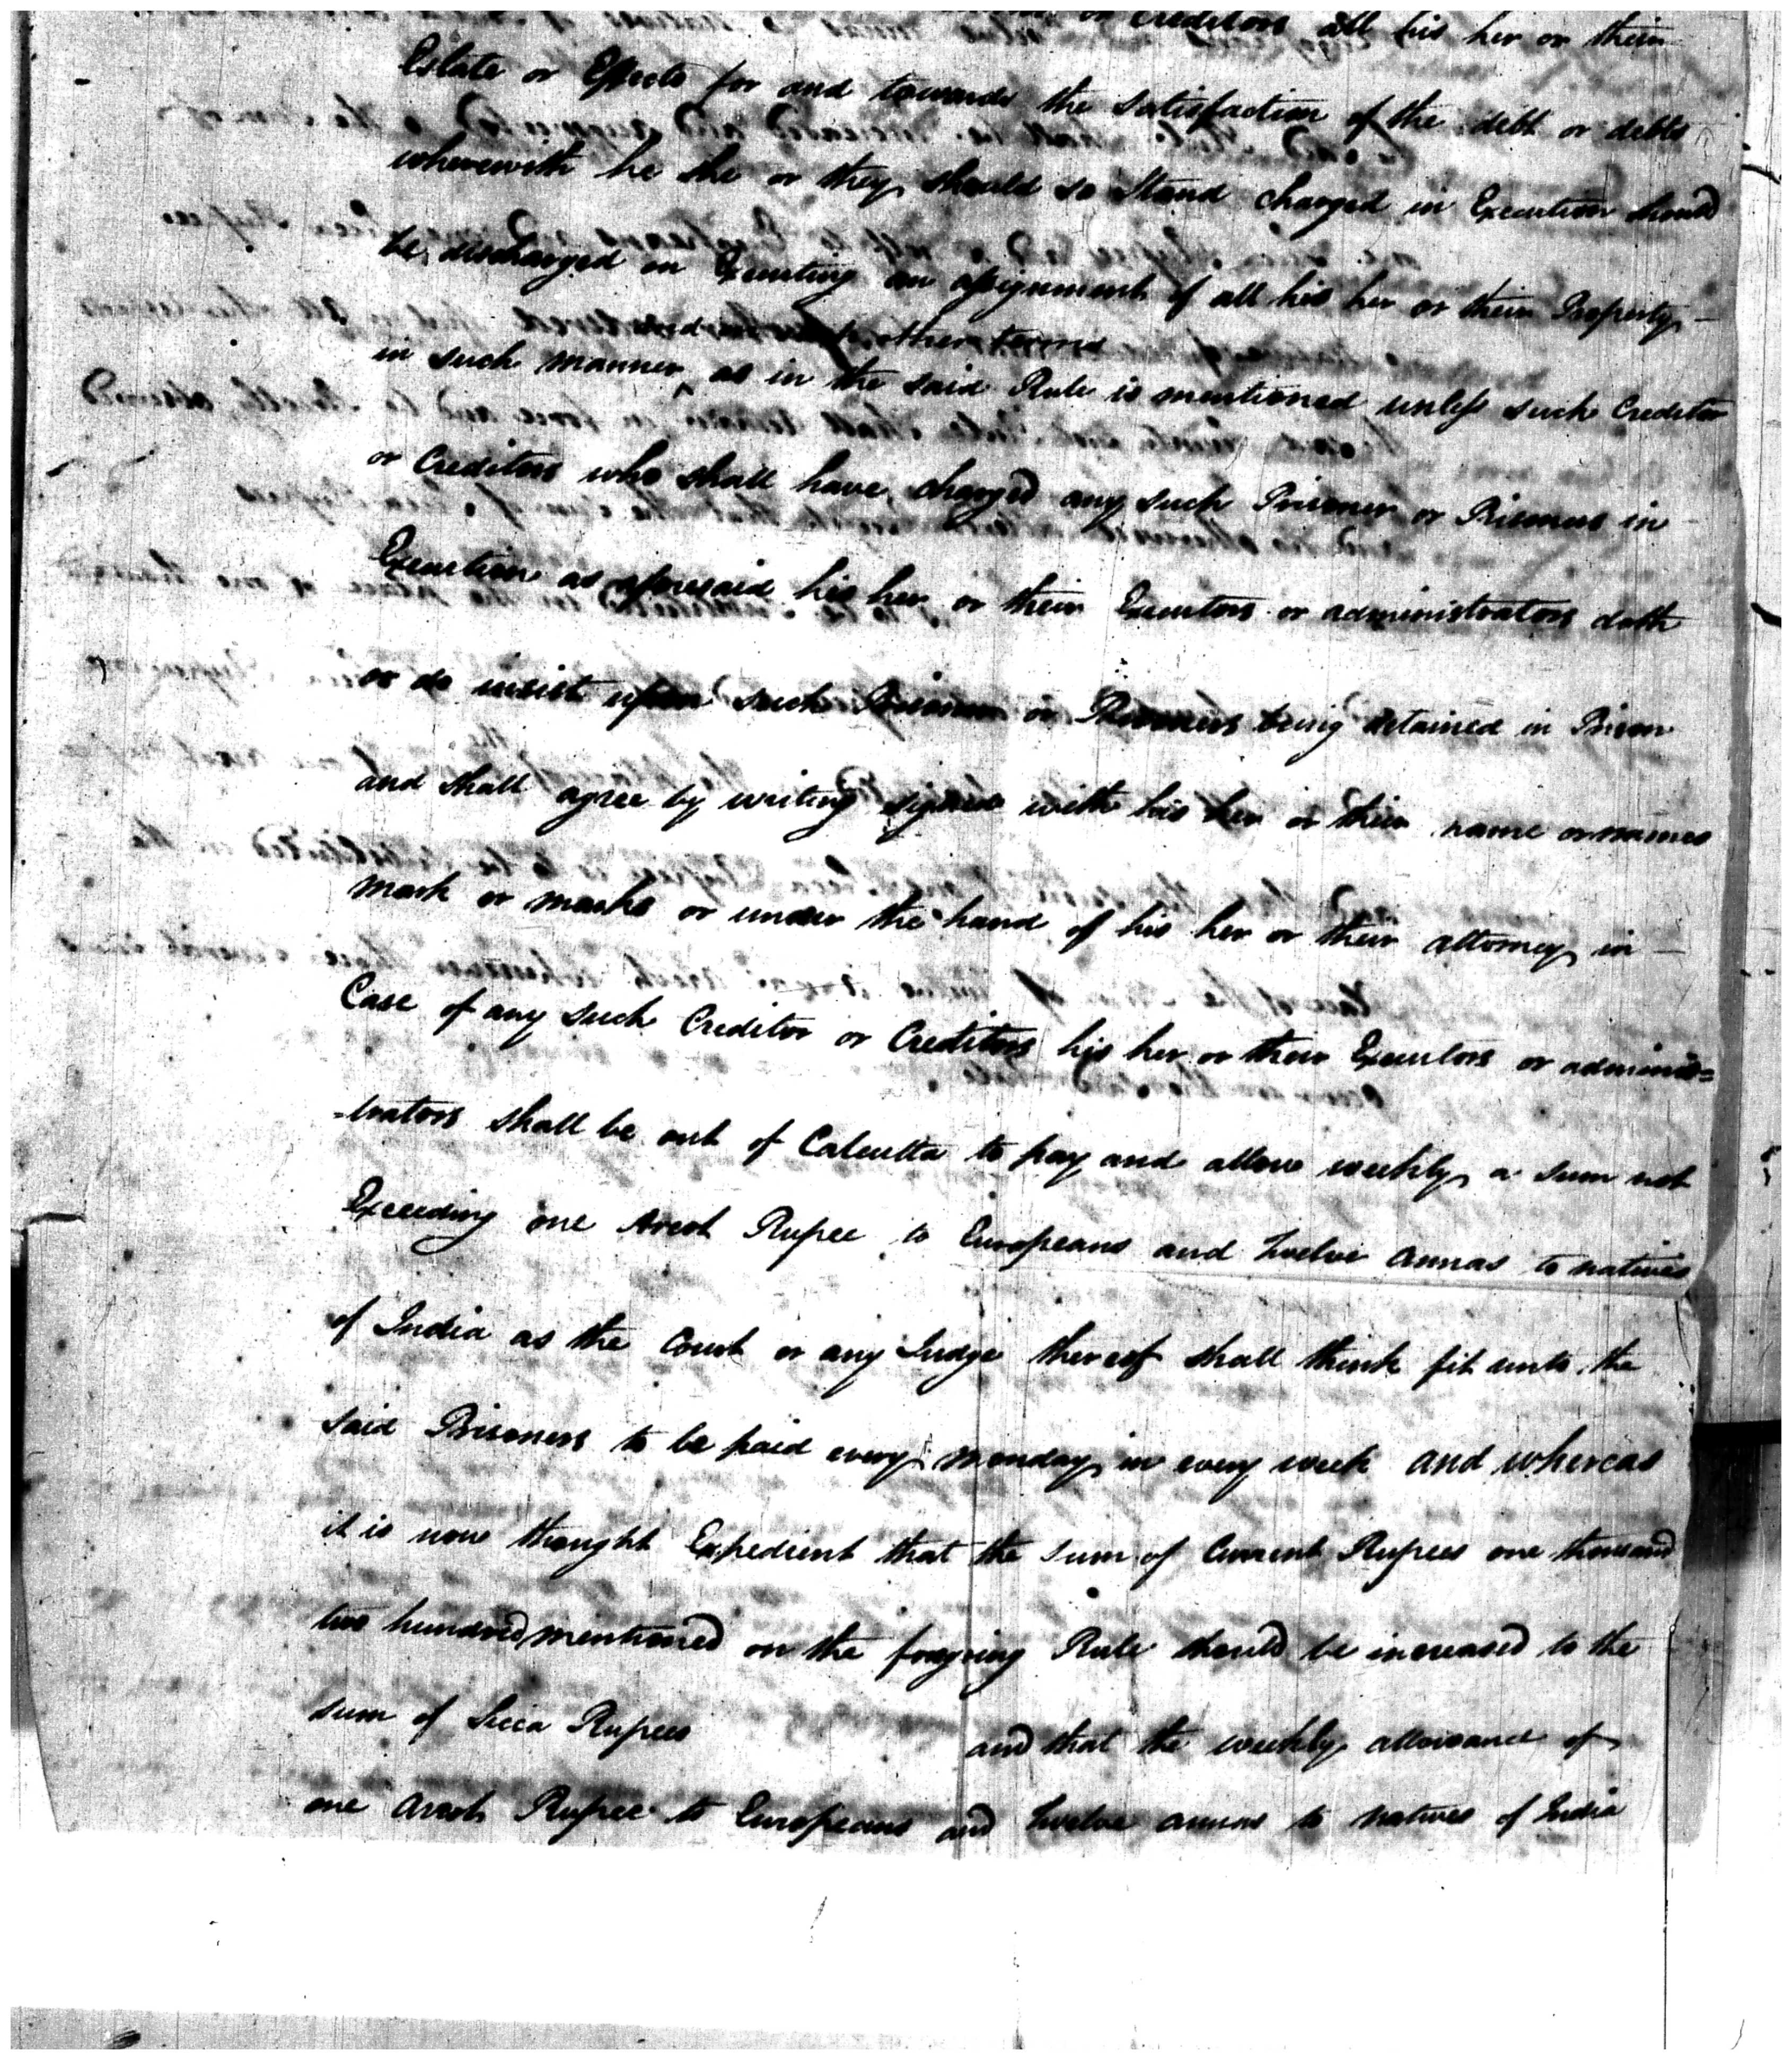 or Creditors all his her or their
Estate or Effects for and towards the satisfaction of the debt or debts
wherewith he she or they should so Stand charged in Execution should
be discharged on Executing an assignment of all his her or their Property —
and other terms
in such manner as in the said Rule is mentioned unless such Creditor
or Creditors who shall have charged any such Prisoner or Prisoners in
Execution as aforesaid his her or their Executors or administrators doth
or do insist upon such Prisoner or Prisoners being detained in Prison
and shall agree by writing signed with his her or their name or names
mark or marks or under the hand of his her or their attorney in —
Case of any such Creditor or Creditors his her or their Executors or adminis=
=trators shall be out of Calcutta to pay and allow weekly a sum not
Exceeding one Arcot Rupee to Europeans and twelve annas to natives
of India as the Court or any Judge thereof shall think fit unto the
said Prisoners to be paid every monday in every week and whereas
it is now thought Expedient that the sum of Current Rupees one thousand
two hundred mentioned on the forgoing Rule should be increased to the
sum of Sicca Rupees and that the weekly allowance of
one Arcot Rupee to Europeans and twelve annas to natives of India